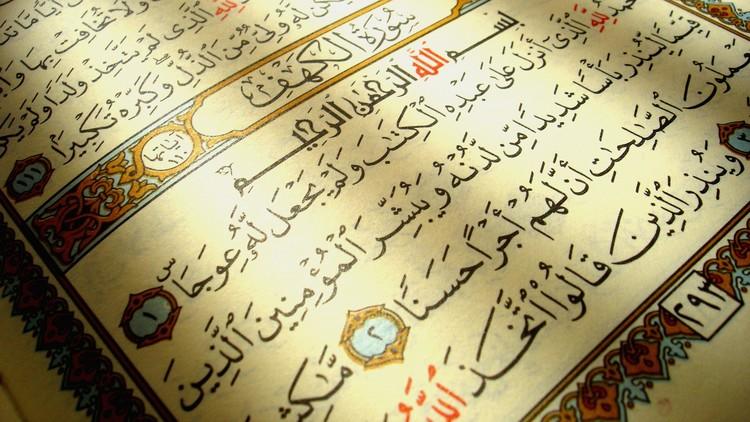 أَيًّا مَّا تَد
وَلَا تُخَافِتْ بِهَا
ٱلَّذِى لَمْ يَتَّخِذْ وَلَدًا وَلَمْ يَكُ
لَّهُۥ وَلِىٌّ مِّنَ ٱلذُّلِّ وَكَبِّرْهُ تَكْبِيرًا ١١١
سُورَةُ الكَهْفِ
بِسْمِ ٱللَّهِ ٱلرَّحْمَٰنِ ٱلرَّحِيمِ
لِلَّهِ ٱلَّذِىٓ أَنزَلَ عَلَىٰ عَبْدِهِ ٱلْكِتَٰبَ وَلَمْ يَجْعَل لَّهُۥ عِوَجَاۜ ١
قَيِّمًا لِّيُنذِرَ بَأْسًا شَدِيدًا مِّن لَّدُنْهُ وَيُبَشِّرَ ٱلْمُؤْمِنِينَ ٱلَّذِينَ
يَعْمَلُونَ ٱلصَّٰلِحَٰتِ أَنَّ لَهُمْ أَجْرًا حَسَنًا ٢ مَّٰكِثِ
٣ وَيُنذِرَ ٱلَّذِينَ قَالُوا۟ ٱتَّخَذَ ٱللَّهُ
٢٩٣